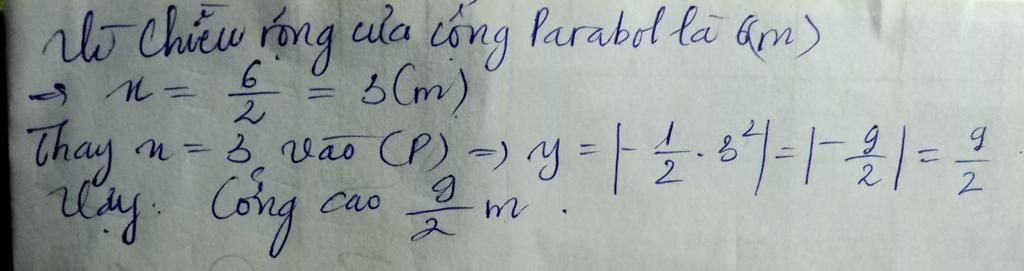 Vì Chiều rộng của cổng Parabol là 6(m)
=> x = 6/2 = 3(m)
Thay x = 3 vào (P) => y = |-1/2 . 3²| = |-9/2| = 9/2
Vậy. Cổng cao 9/2 m.